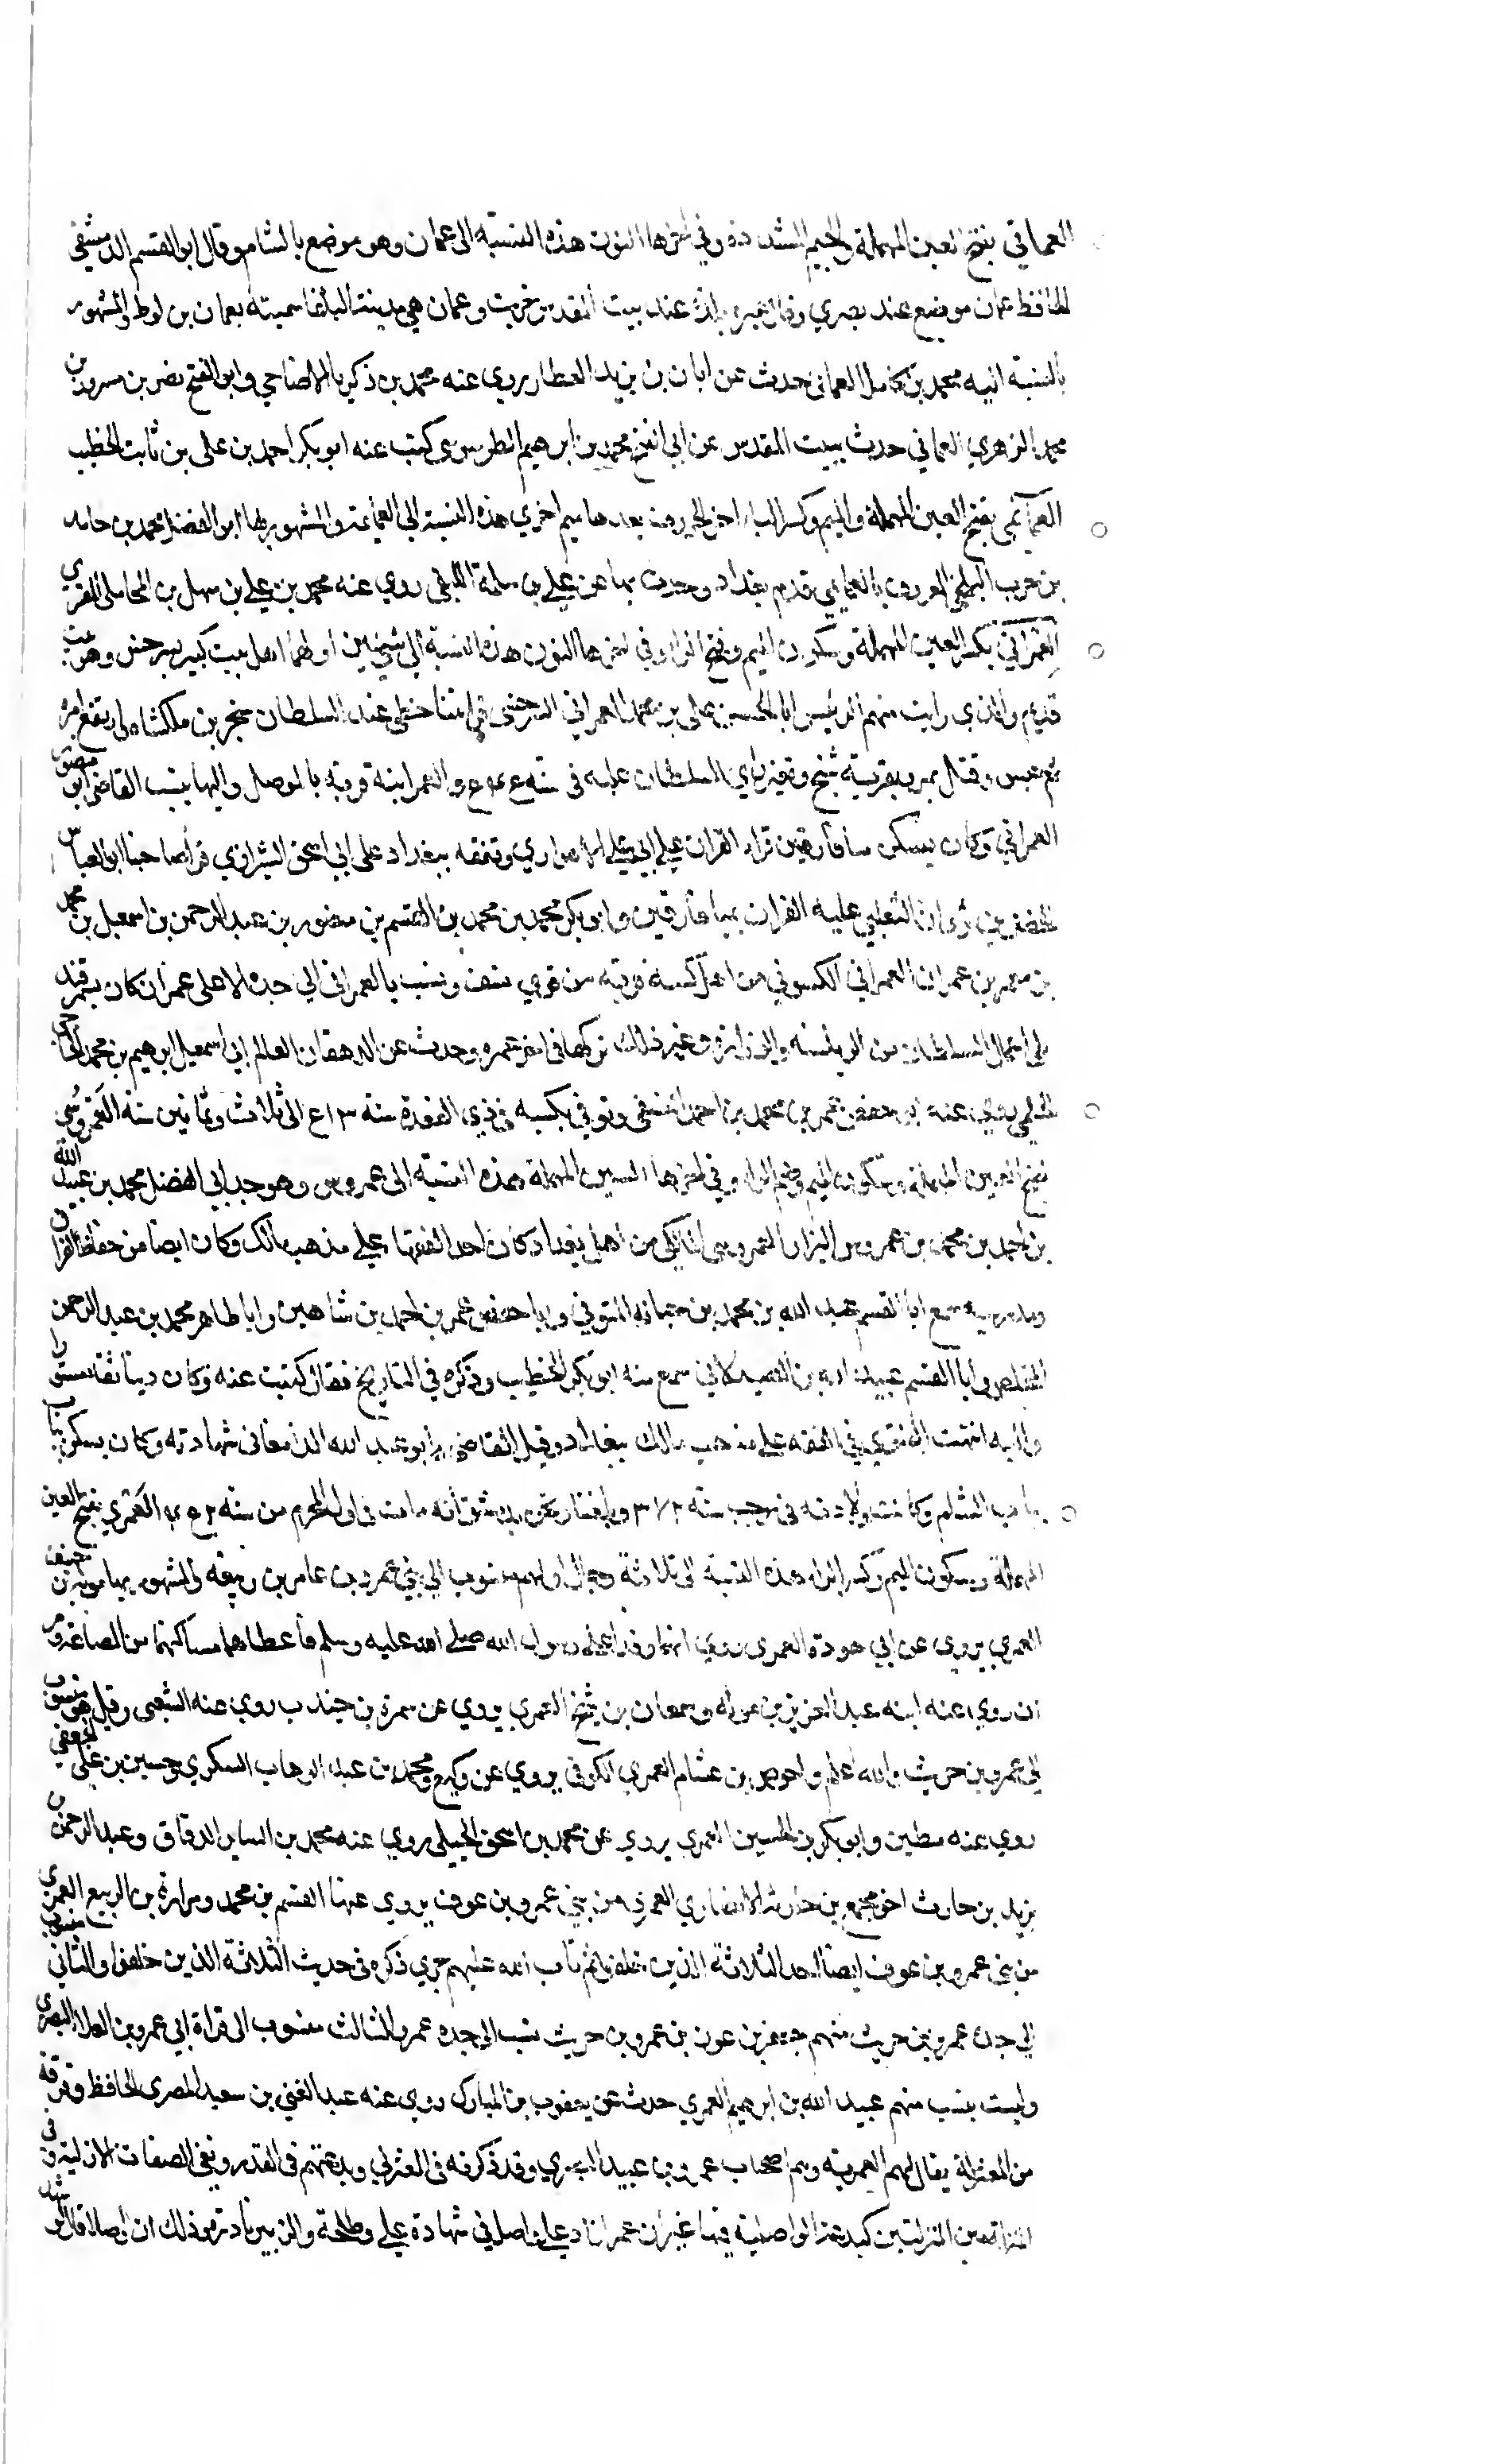 العماني بفتح العين المهملة والميم المشددة وفي اخرها النون هذه النسبة الى عمان وهو موضع بالشام وقال ابو القسم الدمشقي
الحافظ عمان موضع عند بصري وقال غيره بلدة عند بيت المقدس خربت وعمان هي مدينة البلقا سميته بعمان بن لوط والمشهور
بالنسبة اليه محمد بن كامل العماني حدث عن ابان بن يزيد العطار روي عنه محمد بن زكريا الاضاحي وابو الفتح نصر بن مسرور بن
محمد الزهري العماني حدث ببيت المقدس عن ابي الفتح محمد بن ابرهيم الطرسوسي كتب عنه ابو بكر احمد بن علي بن ثابت الخطيب
العمائمي بفتح العين المهملة والميم وكسر الياء اخر الحروف بعدها ميم اخري هذه النسبة الى العمائم والمشهور بها ابو الفضل محمد بن حامد
بن حرب البلخي المعروف بالعمايمي قدم بغداد وحدث بها عن علي بن سلمة اللبقي روي عنه محمد بن علي بن سهل بن المحاملي المقري
العمراني بكسر العين المهملة وسكون الميم وفتح الراء وفي اخرها النون هذه النسبة الى شيخين اولهما اهل بيت كبير بسرخس وهو بيت
قديم والذي رايت منهم الرئيس ابا الحسن علي بن محمد العمراني السرخسي حظي عند السلطان سنجر بن ملكشاه وارتفع امره
ثم حبس وقتل بمرو بقرية وتغير راي السلطان عليه في سنه والعمرانية قرية بالموصل واليها ينسب القاضي ابو منصور
العمراني وكان يسكن ميافارقين قراء القران علي ابي علي الاهوازي وتفقه ببغداد على ابي اسحق الشيرازي قرأ صاحبنا ابو العباس
الخضر بن ثروان الثعلبي عليه القران بميافارقين وابو بكر محمد بن محمد بن القسم بن منصور بن عبد الرحمن بن اسمعيل بن محمد
بن عمران العمراني الكسوفي من اهل كسبه قرية من قري نسف وينسب بالعمراني الى جده الاعلى عمران كان بسمرقند
على اعمال السلطان من الرياسة والوزارة وغير ذلك تركها في اخر عمره وحدث عن الدهقان العالم ابي اسمعيل ابرهيم بن محمد
روي عنه ابو حفص عمر بن محمد بن احمد النسفي وتوفي بكسبه في ذي القعدة سنه الى ثلاث وثمانين سنه العمروسي
بفتح العين المهملة وسكون الميم وضم الراء وفي اخرها السين المهملة هذه النسبة الى عمروس وهو جد ابي الفضل محمد بن عبيد الله
بن احمد بن محمد بن عمروس البزار العمروسي المالكي من اهل بغداد كان احد الفقها علي مذهب مالك وكان ايضا من حفاظ القران
ومدرسيه سمع ابا القسم عبيد الله بن محمد بن حبابة المتوفي وابا حفص عمر بن احمد بن شاهين وابا طاهر محمد بن عبد الرحمن
المخلص وابا القسم عبيد الله بن الصيدلاني سمع منه ابو بكر الخطيب وذكره في التاريخ فقال كتبت عنه وكان دينا ثقة مستورا
واليه انتهت الفتوي في الفقه علي مذهب مالك ببغداد وقبل القاضي ابو عبد الله الدامغاني شهادته وكان يسكن بباب
الشام وكانت ولادته في رجب سنه ٣٧٢ انه مات في اول المحرم من سنه العمري بفتح العين
المهملة وسكون الميم وكسر الراء هذه النسبة الى ثلاثة رجال اولهم منسوب الى بني عمرو بن عامر بن ربيعه والمشهور بها مولة بن كثيف
العمري يروي عن ابي هوذة العمري انهما وفدا على رسول الله صلى الله عليه وسلم فاعطاهما مساكنهما من
روي عنه ابنه عبد العزيز بن موله وسمعان بن مشنج العمري يروي عن سمرة بن جندب روي عنه الشعبي وقيل هو منسوب
الى عمرو بن حريث والله اعلم واحوص بن عثام العمري الكوفي يروي عن وكيع ومحمد بن عبد الوهاب السكري وحسين بن علي الجعفي
روي عنه مطين وابو بكر بن الحسين العمري يروي عن محمد بن اسحق روي عنه محمد بن الدقاق وعبد الرحمن بن
يزيد بن حارث اخو مجمع بن حارثة الانصاري العمري من بني عمرو بن عوف يروي عنه القسم بن محمد ومرارة بن الربيع العمري
من بني عمرو بن عوف ايضا احد الثلاثة الذين خلفوا ثم تاب الله عليهم جري ذكره في حديث الثلاثة الذين خلفوا والثاني منسوب
الى جده عمرو بن حريث منهم جعفر بن عون بن عمرو بن حريث نسب الى جده عمرو والثالث منسوب الى قراة ابي عمرو بن العلا البصري
وليست بنسب منهم عبيد الله بن ابرهيم العمري حدث عن يعقوب بن المبارك روي عنه عبد الغني بن سعيد المصري الحافظ وفرقة
من المعتزلة يقال لهم العمرية وهم اصحاب عمرو بن عبيد البصري وقد ذكرته في المعتزلي وبدعتهم في القدر ونفي الصفات الازلية وفي
المنزلة بين المنزلتين كبدعة الواصلية فيها غير ان عمرا زاد علي واصل في شهادة علي وطلحة والزبير وذلك ان واصلا قال لو شهد